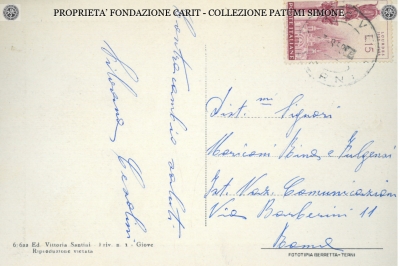 PROPRIETA' FONDAZIONE CARIT - COLLEZIONE PATUMI SIMONE
L.15
Contraccambio saluti
Dist. mi Signori
Moriconi Nina e Fulgenzi
Ist. Naz. Comunicazioni
Via Barberini 11
Roma
Ed. Vittoria Santini - riv. n. 1 - Giove
Riproduzione vietata
FOTOTIPIA BERRETTA - TERNI